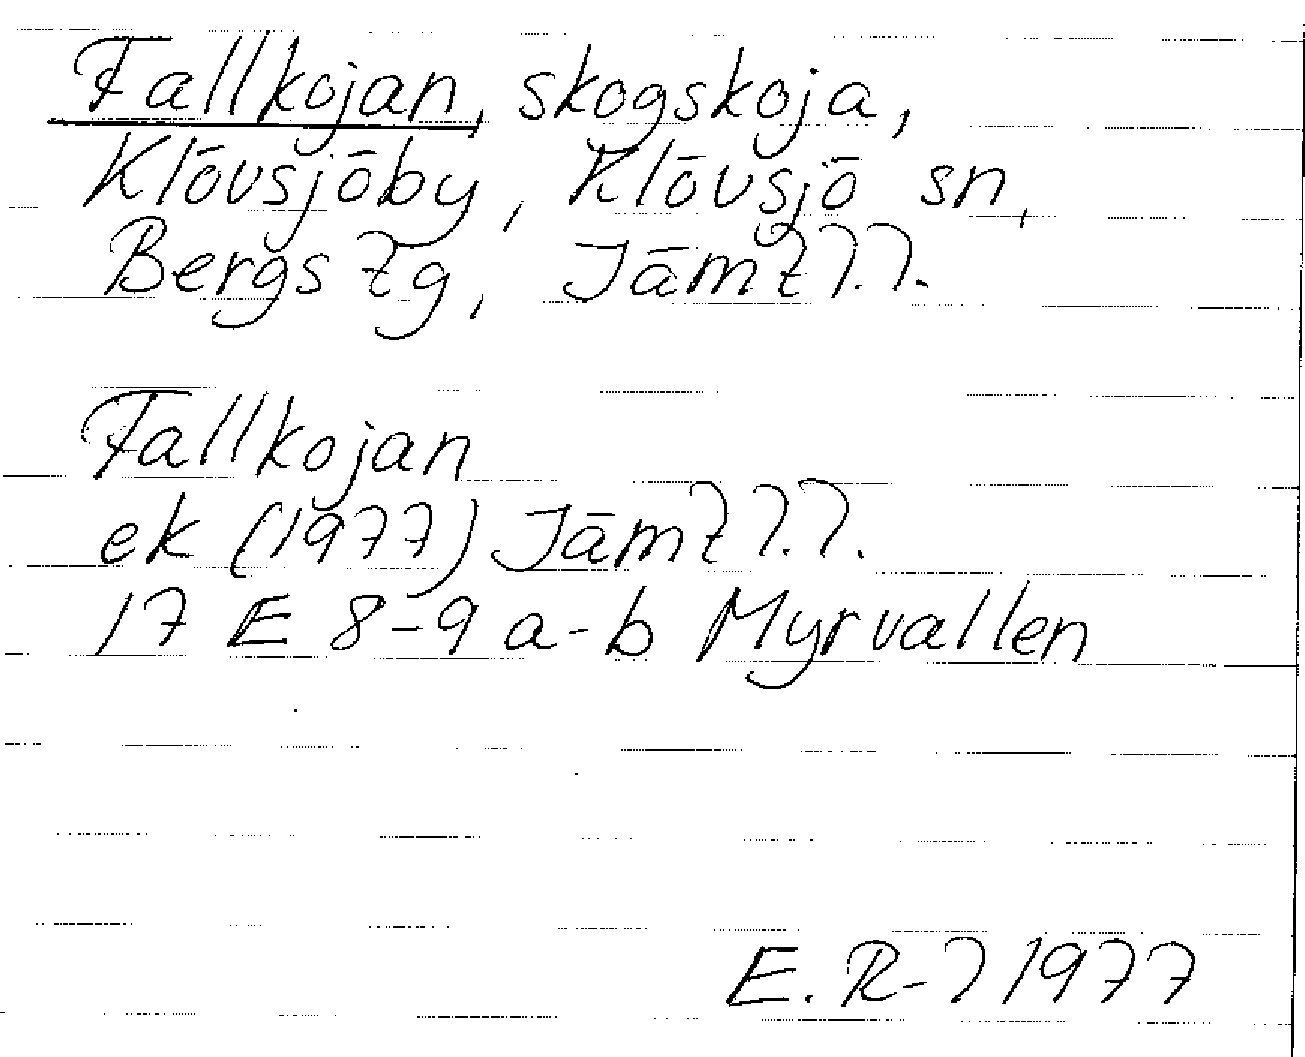 Fallkojan, skogskoja,
Klövsjöby, Klövsjö sn,
Bergs tg,
Fallkojan
ek (1977)
17 E 8-9 a-b Myrvallen
1977